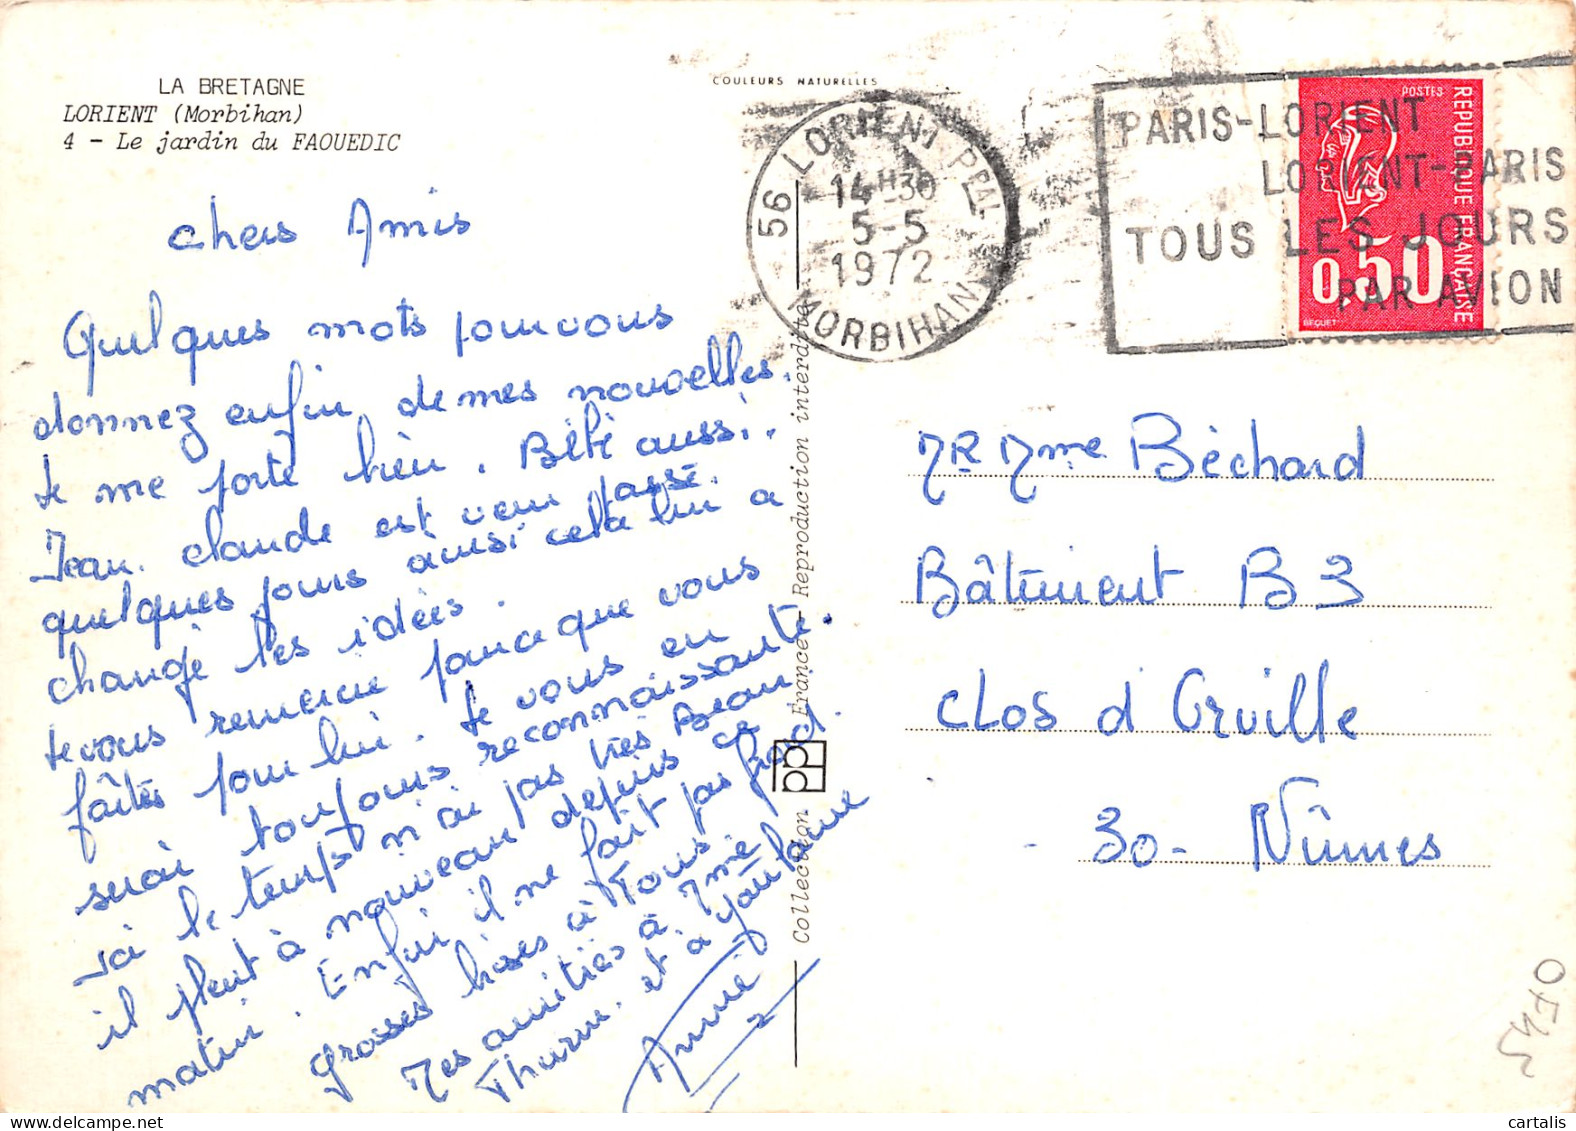 LA BRETAGNE
LORIENT (Morbihan)
4 - Le jardin du FAOUEDIC
COULEURS NATURELLES
chers Amis
Quelques mots pour vous
donnez enfin de mes nouvelles.
Je me porte bien. Bébé aussi.
Jean. claude est venu passé
quelques jours ainsi cela lui a
changé les idées.
Je vous remercie pour ce que vous
faîtes pour lui. Je vous en
serai toujours reconnaissante.
Ici le temps n'ai pas très Beau
il pleut à nouveau depuis ce
matin. Enfin il ne fait pas froid.
grosses bises à Tous
Mes amitiés à Mme
Thurin. et à
Annie
Collection PPI France - Reproduction interdite
56 LORIENT PPAL
14H30
5-5
1972
MORBIHAN
PARIS-LORIENT
LORIENT-PARIS
TOUS LES JOURS
PAR AVION
POSTES
REPUBLIQUE FRANÇAISE
0,50
BEQUET
MR Mme Béchard
Bâtiment B3
Clos d'Orville
30- Nîmes
cartalis.com